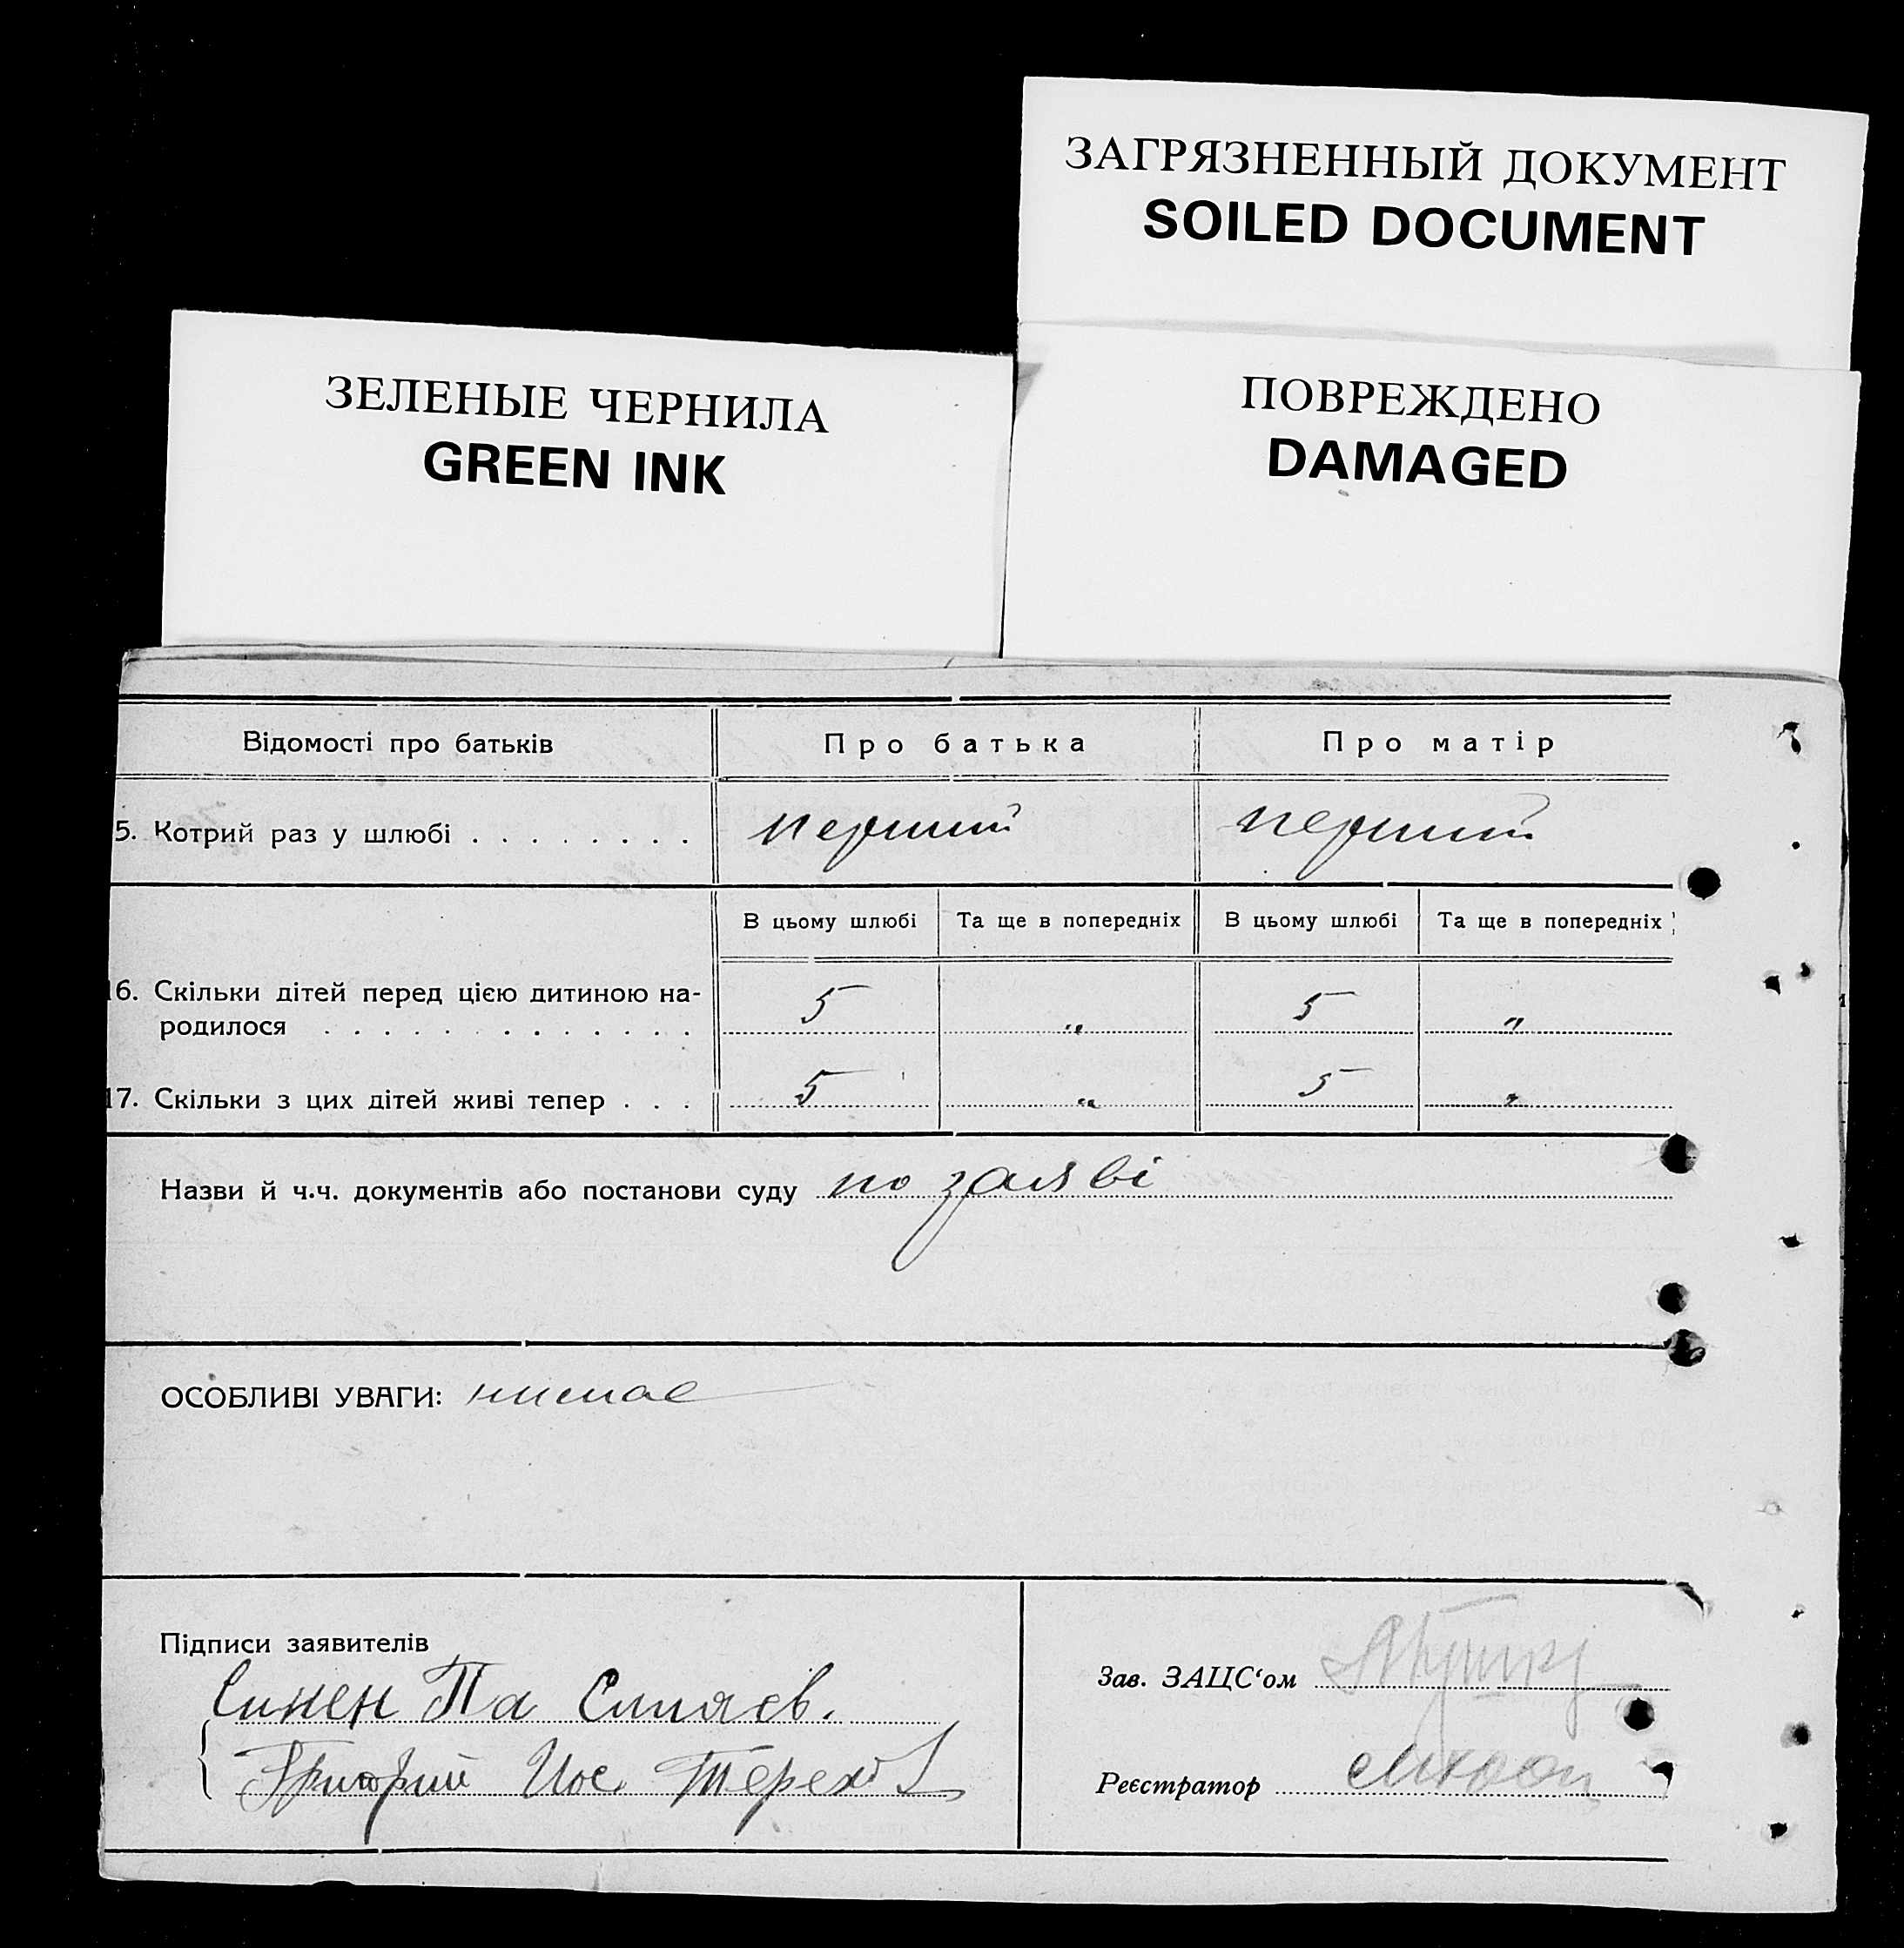 ЗАГРЯЗНЕННЫЙ ДОКУМЕНТ
SOILED DOCUMENT
ЗЕЛЕНЫЕ ЧЕРНИЛА
GREEN INK
ПОВРЕЖДЕНО
DAMAGED
Відомості про батьків Про батька Про матір
5. Котрий раз у шлюбі . . . . . . . . перший перший
В цьому шлюбі Та ще в попередніх В цьому шлюбі Та ще в попередніх
16. Скільки дітей перед цією дитиною на-
родилося . . . . . . . . . . . . . 5 „ 5 „
17. Скільки з цих дітей живі тепер . . . 5 „ 5 „
Назви й ч.ч. документів або постанови суду по заяві
ОСОБЛИВІ УВАГИ: нимае
Підписи заявителів
Зав. ЗАЦС‘ом
Григорий Иос. Терех
Реєстратор